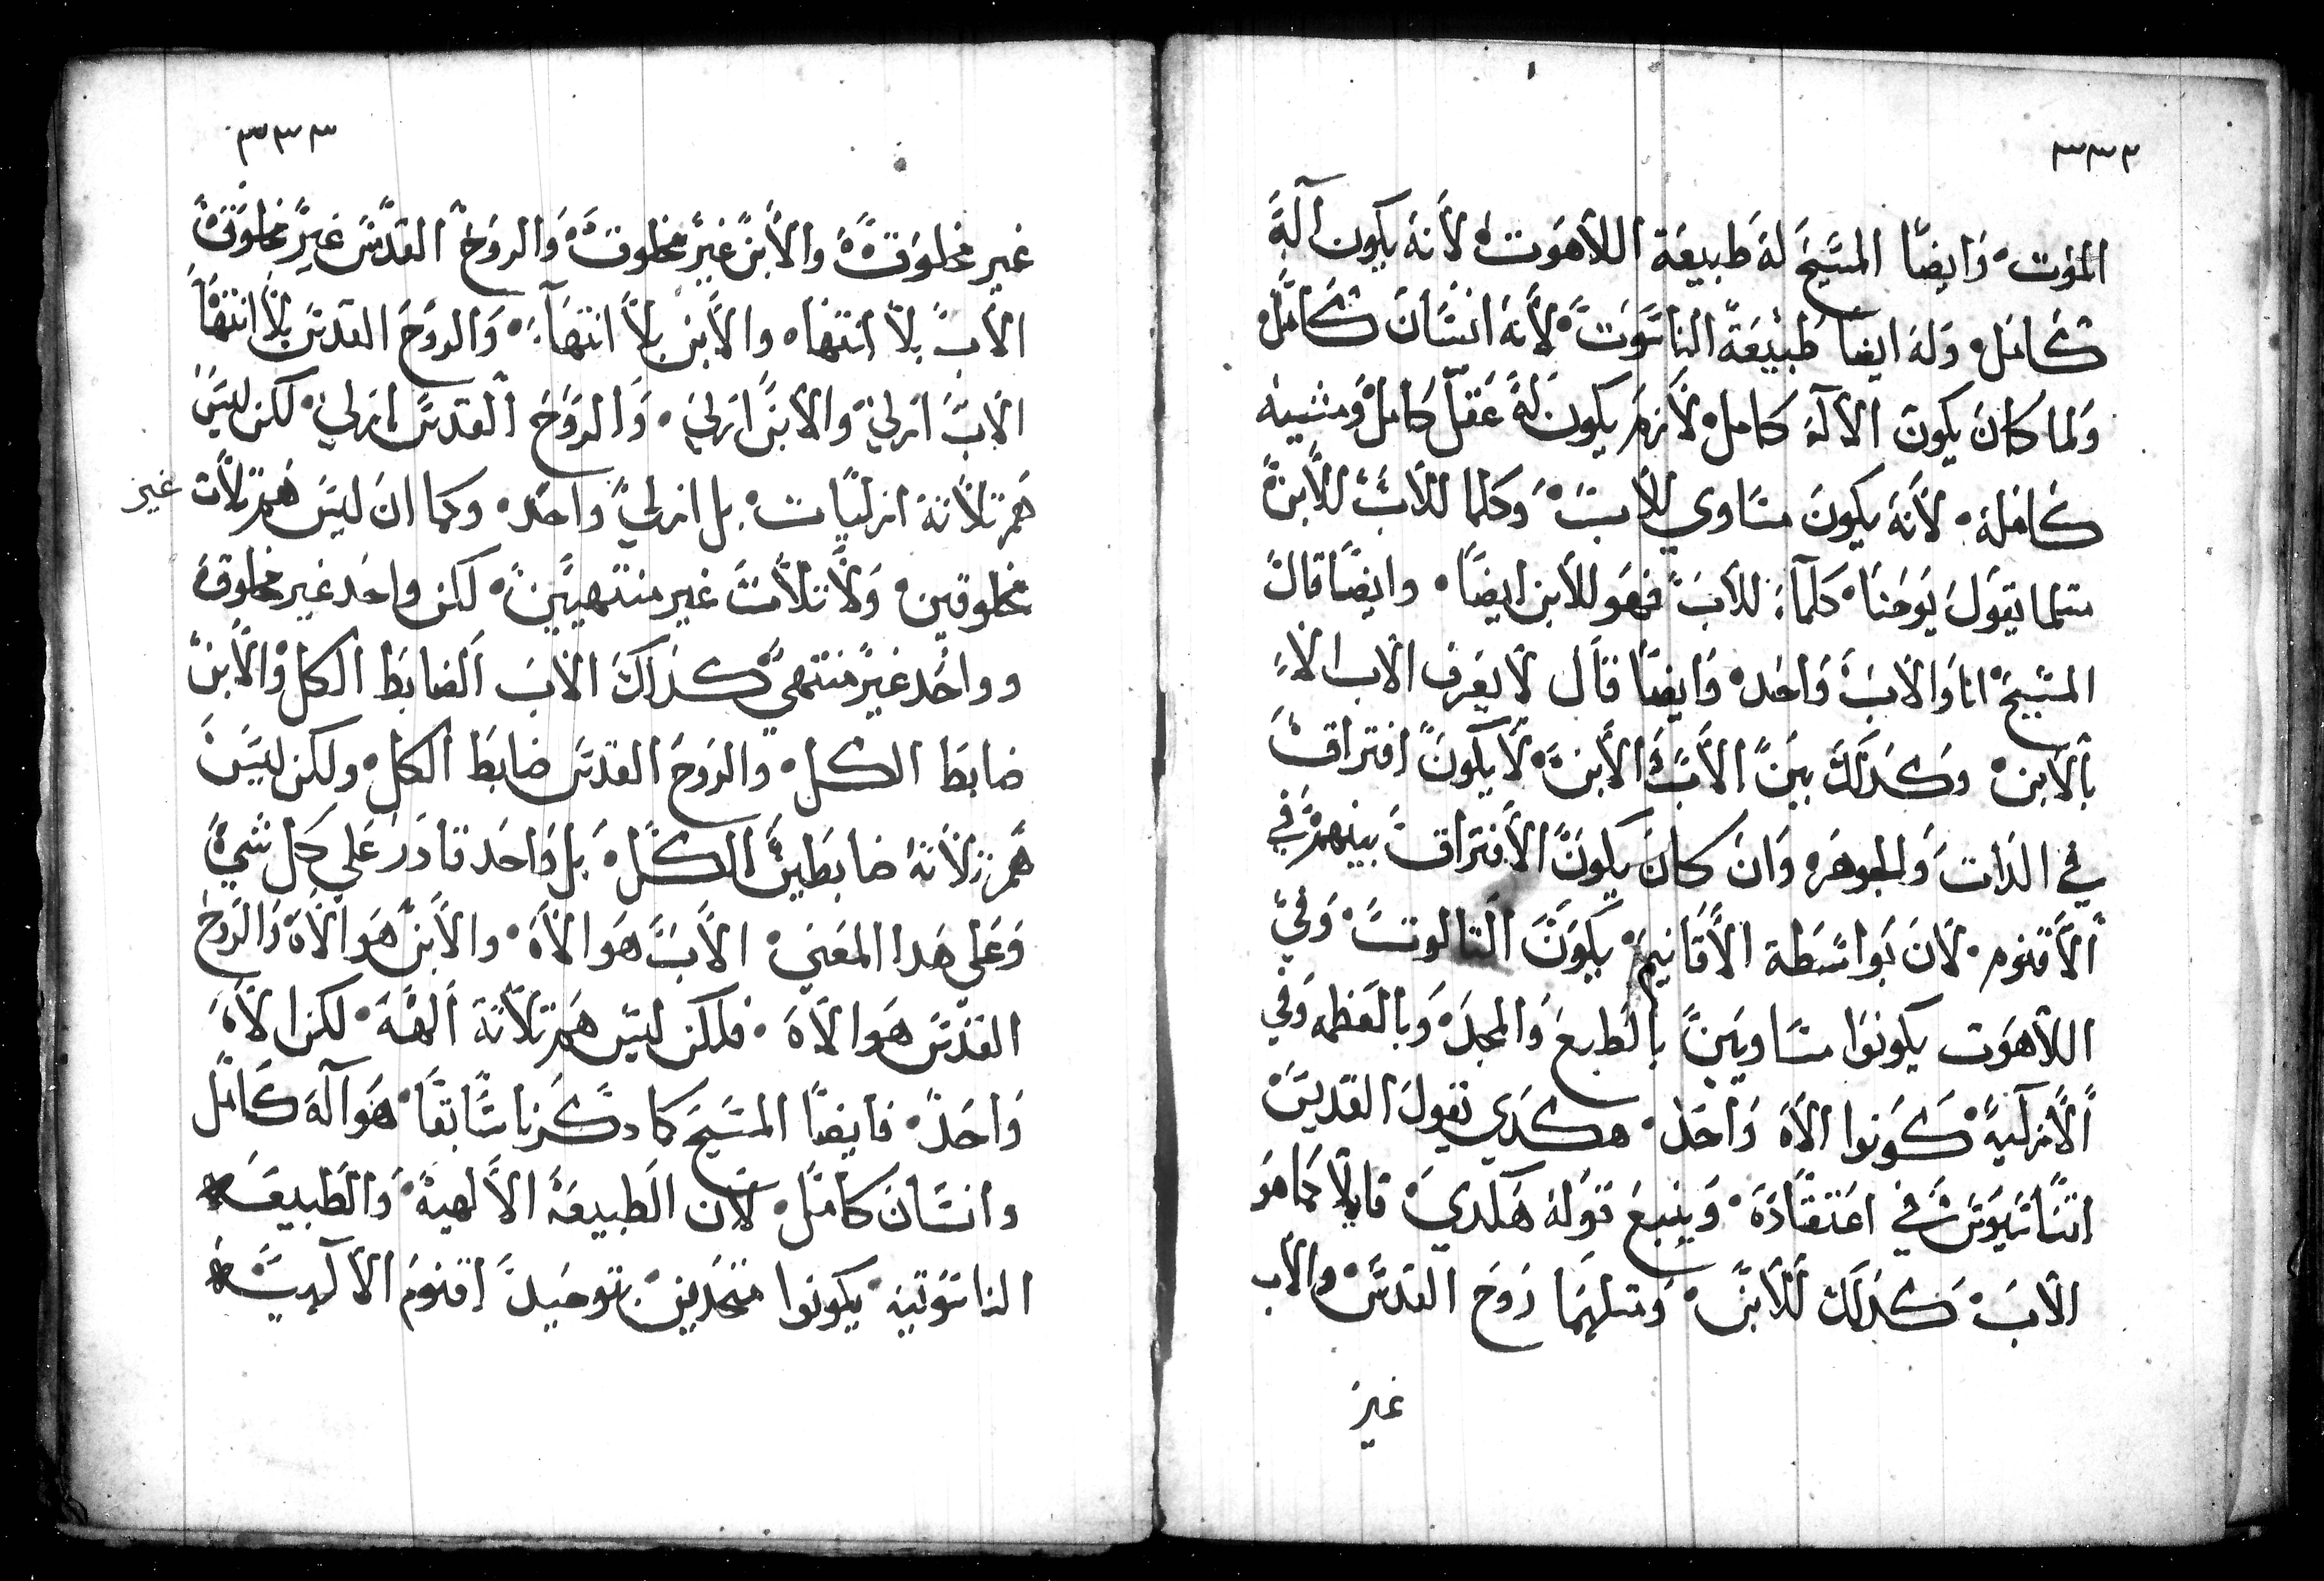 ٣٣٢
الموت وايضا المسيح له طبيعة اللاهوت لانه يكون اله
كامل وله ايضا طبيعة الناسوت لانه انسان كامل
ولما كان يكون الاله كامل لازم يكون له عقل كامل ومشيه
كامله لانه يكون مساوي للاب وكلما للاب للابن
متلما يقول يوحنا كلما للاب فهو للابن ايضا وايضا قال
المسيح انا والاب واحد وايضا قال لا يعرف الاب الا
بالابن وكدلك بين الاب والابن لا يكون افتراق
في الدات والجوهر وان كان يكون الافتراق بينهم في
الاقنوم لان بواسطة الاقانيم يكون التالوت وفي
اللاهوت يكونوا متساويين بالطبع والمجد وبالعظمه وفي
الازليه كونوا الاه واحد هكدي تقول القديس
اتناسيوس في اعتقاده ويتبع قوله هكدي قايلا كما هو
الاب كدلك الابن ومتلهما روح القدس والاب
غير
٣٣٣
غير مخلوقة والابن غير مخلوقة والروح القدس غير مخلوقة
الاب بلا انتها والابن بلا انتهاء والروح القدس بلا انتها
الاب ازلي والابن ازلي والروح القدس ازلي لكن ليس
هم تلاتة ازليات بل ازلي واحد وكما ان ليس هم تلات غير
مخلوقين ولا تلات غير منتهيين لكن واحد غير مخلوقة
وواحد غير منتهي كداك الاب الضابط الكل والابن
ضابط الكل والروح القدس ضابط الكل ولكن ليس
هم تلاتة ضابطين الكل بل واحد قادر علي كل شي
وعلي هدا المعني الاب هو الاه والابن هو الاه والروح
القدس هو الاه فلكن ليس هم تلاتة الهة لكن الاه
واحد فايضا المسيح كما دكرنا سابقا هو اله كامل
وانسان كامل لان الطبيعة الالهية والطبيعة
الناسوتيه يكونوا متحدين بتوحيد اقنوم الالهية